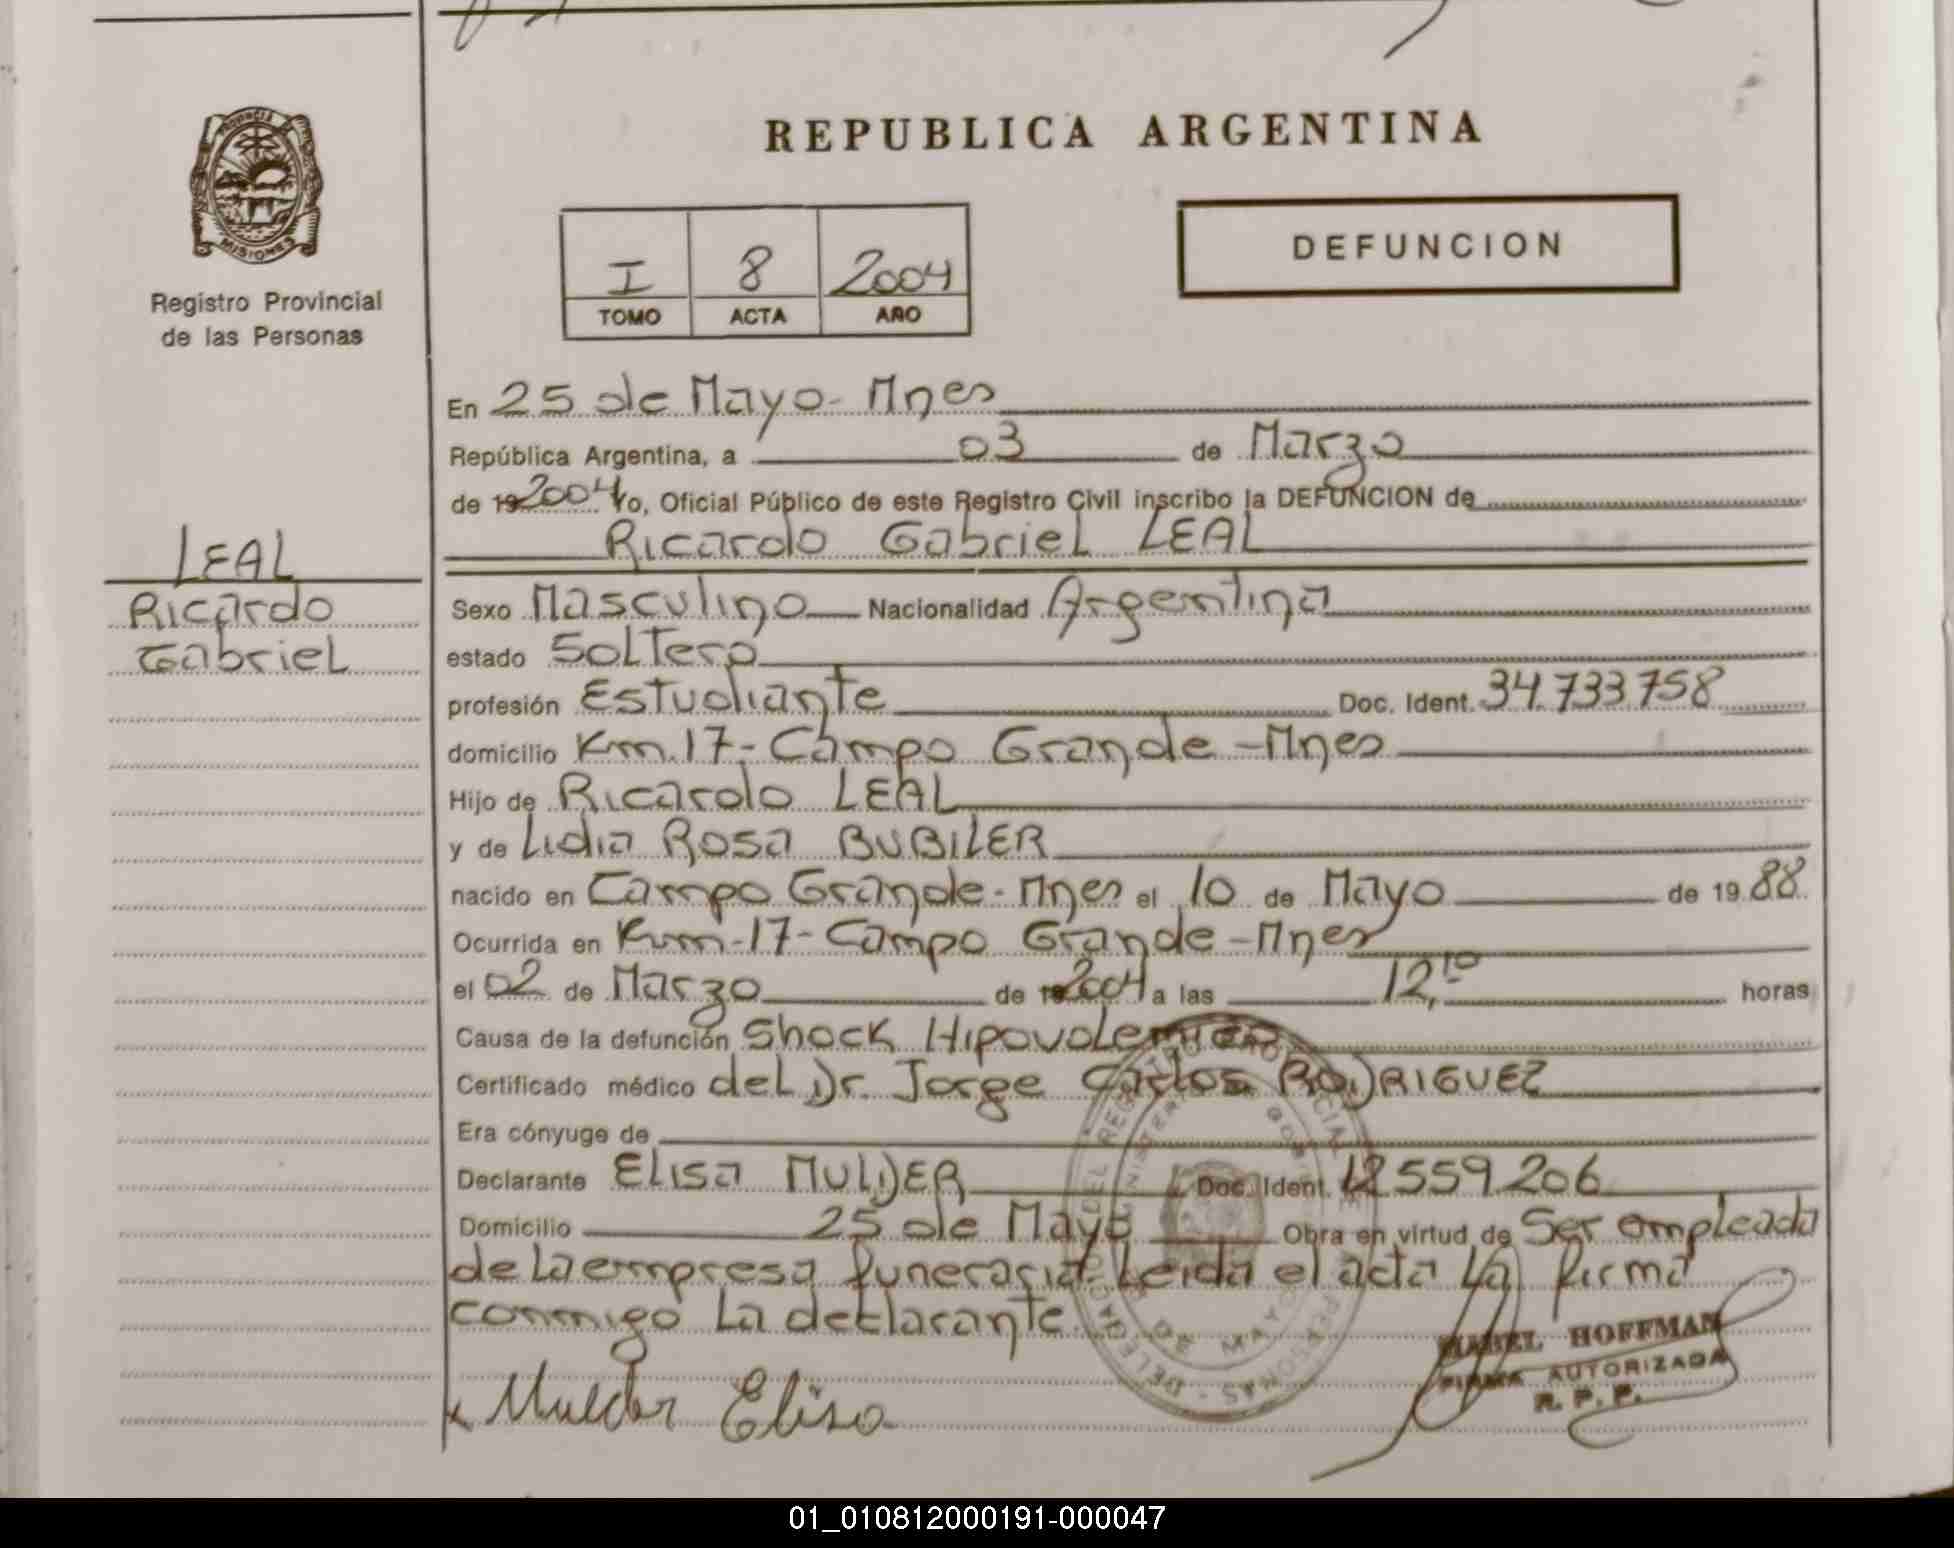 REPUBLICA ARGENTINA
PROVINCIA DE
MISIONES
Registro Provincial
de las Personas
I 8 2004
TOMO ACTA AÑO
DEFUNCION
LEAL
Ricardo
Gabriel
En 25 de Mayo - Mnes
República Argentina, a 03 de Marzo
de 19 2004 Yo, Oficial Público de este Registro Civil inscribo la DEFUNCION de
Ricardo Gabriel LEAL
Sexo Masculino Nacionalidad Argentina
estado Soltero
profesión Estudiante Doc. Ident. 34.733.758
domicilio Km. 17 - Campo Grande - Mnes
Hijo de Ricardo LEAL
y de Lidia Rosa BUBILER
nacido en Campo Grande - Mnes el 10 de Mayo de 19 88
Ocurrida en Km - 17 - Campo Grande - Mnes
el 02 de Marzo de 19 2004 a las 12,10 horas
Causa de la defunción Shock Hipovolemico
Certificado médico del Dr. Jorge Carlos RODRIGUEZ
Era cónyuge de
Declarante ELISA MULDER Doc. Ident. 12.559.206
Domicilio 25 de Mayo Obra en virtud de Ser empleada
de la empresa funeraria. Leida el acta La firma
conmigo La declarante
Mulder Elisa
MABEL HOFFMAN
FIRMA AUTORIZADA
R. P. P.
01_010812000191-000047